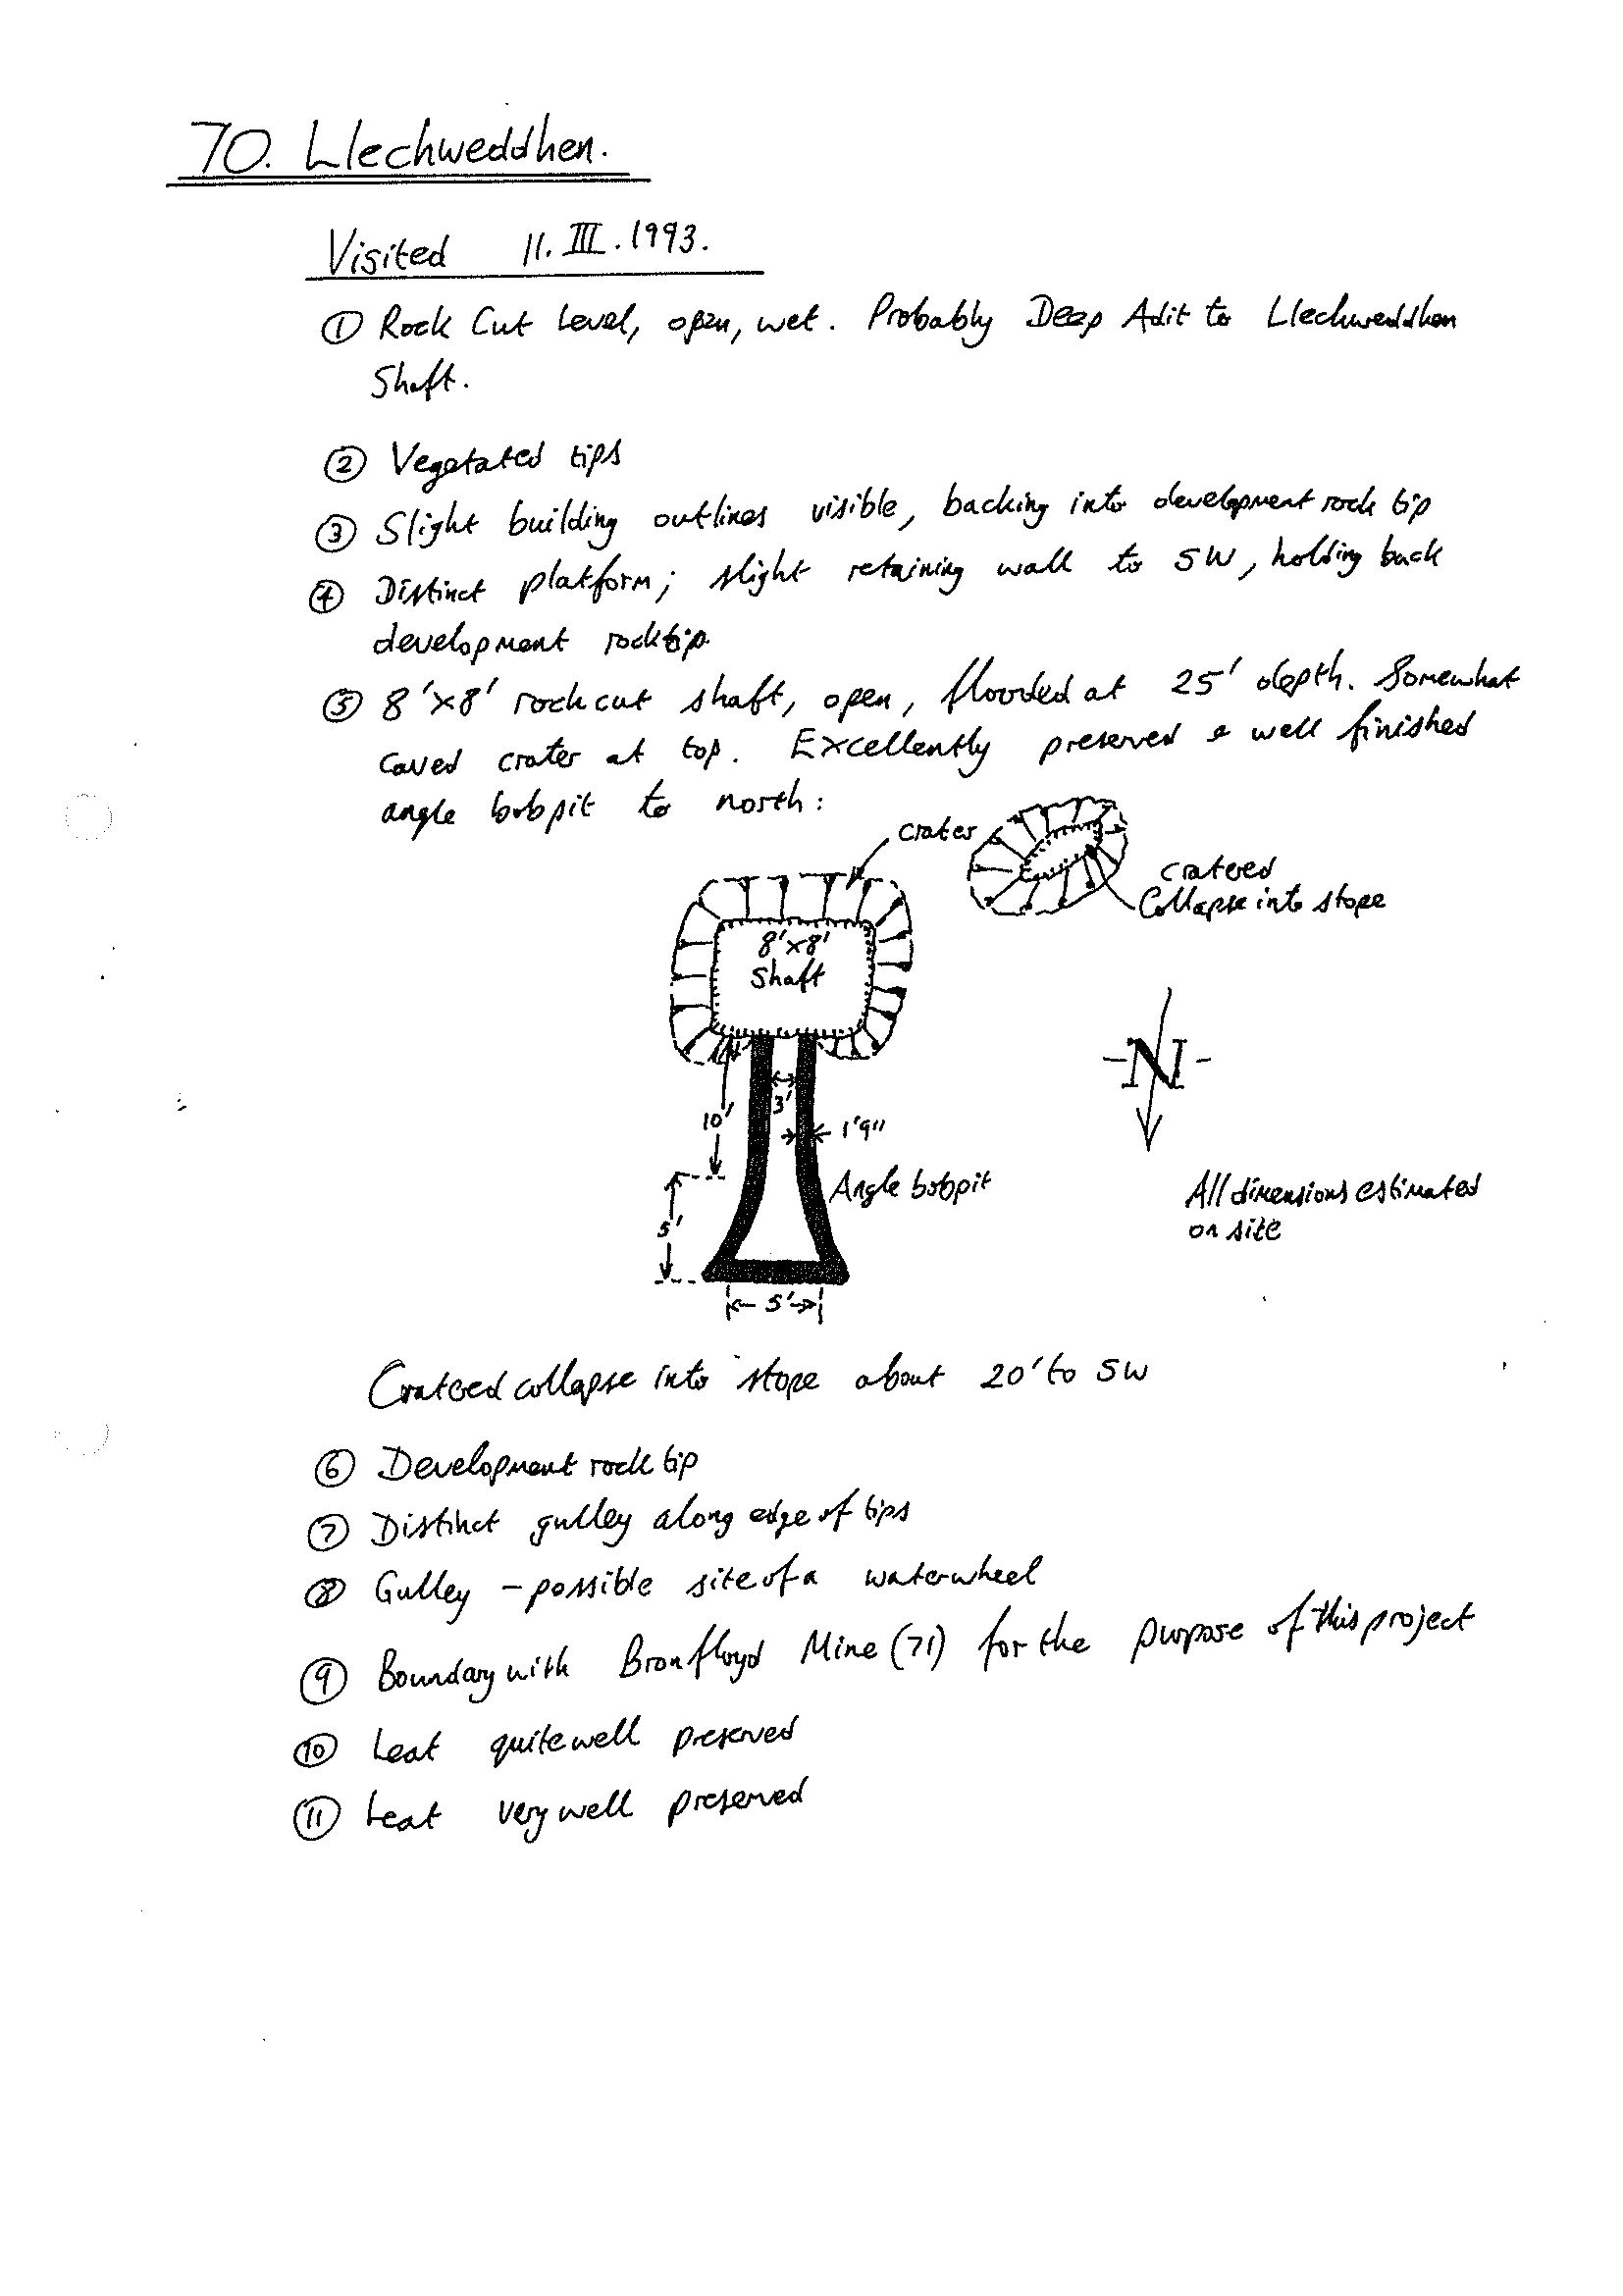 70. Llechweddhen.
Visited 11.III.1993.
① Rock Cut Level, open, wet. Probably Deep Adit to Llechweddhen
Shaft.
② Vegetated tips
③ Slight building outlines visible, backing into development rock tip
④ Distinct platform; slight retaining wall to SW, holding back
development rocktip
⑤ 8'x8' rock cut shaft, open, flooded at 25' depth. Somewhat
caved crater at top. Excellently preserved & well finished
angle bobpit to north:
crater
cratered
Collapse into stope
8'x8'
Shaft
N
3'
10'
1'9"
Angle bobpit
5'
All dimensions estimated
on site
5'
Cratered collapse into stope about 20' to SW
⑥ Development rock tip
⑦ Distinct gulley along edge of tips
⑧ Gulley - possible site of a waterwheel
⑨ Boundary with Bronfloyd Mine (71) for the purpose of this project
⑩ Leat quite well preserved
⑪ Leat very well preserved